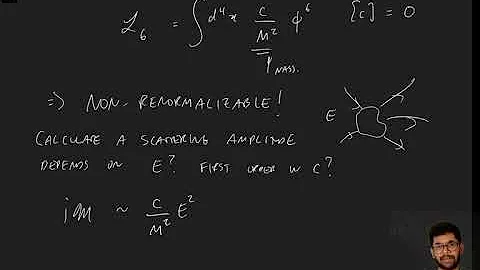 ℒ₆ = ∫d⁴x c/M² φ⁶ [c] = 0
MASS.
⇒ NON-RENORMALIZABLE!
CALCULATE A SCATTERING AMPLITUDE E
DEPENDS ON E? FIRST ORDER IN C?
iM ~ c/M² E²